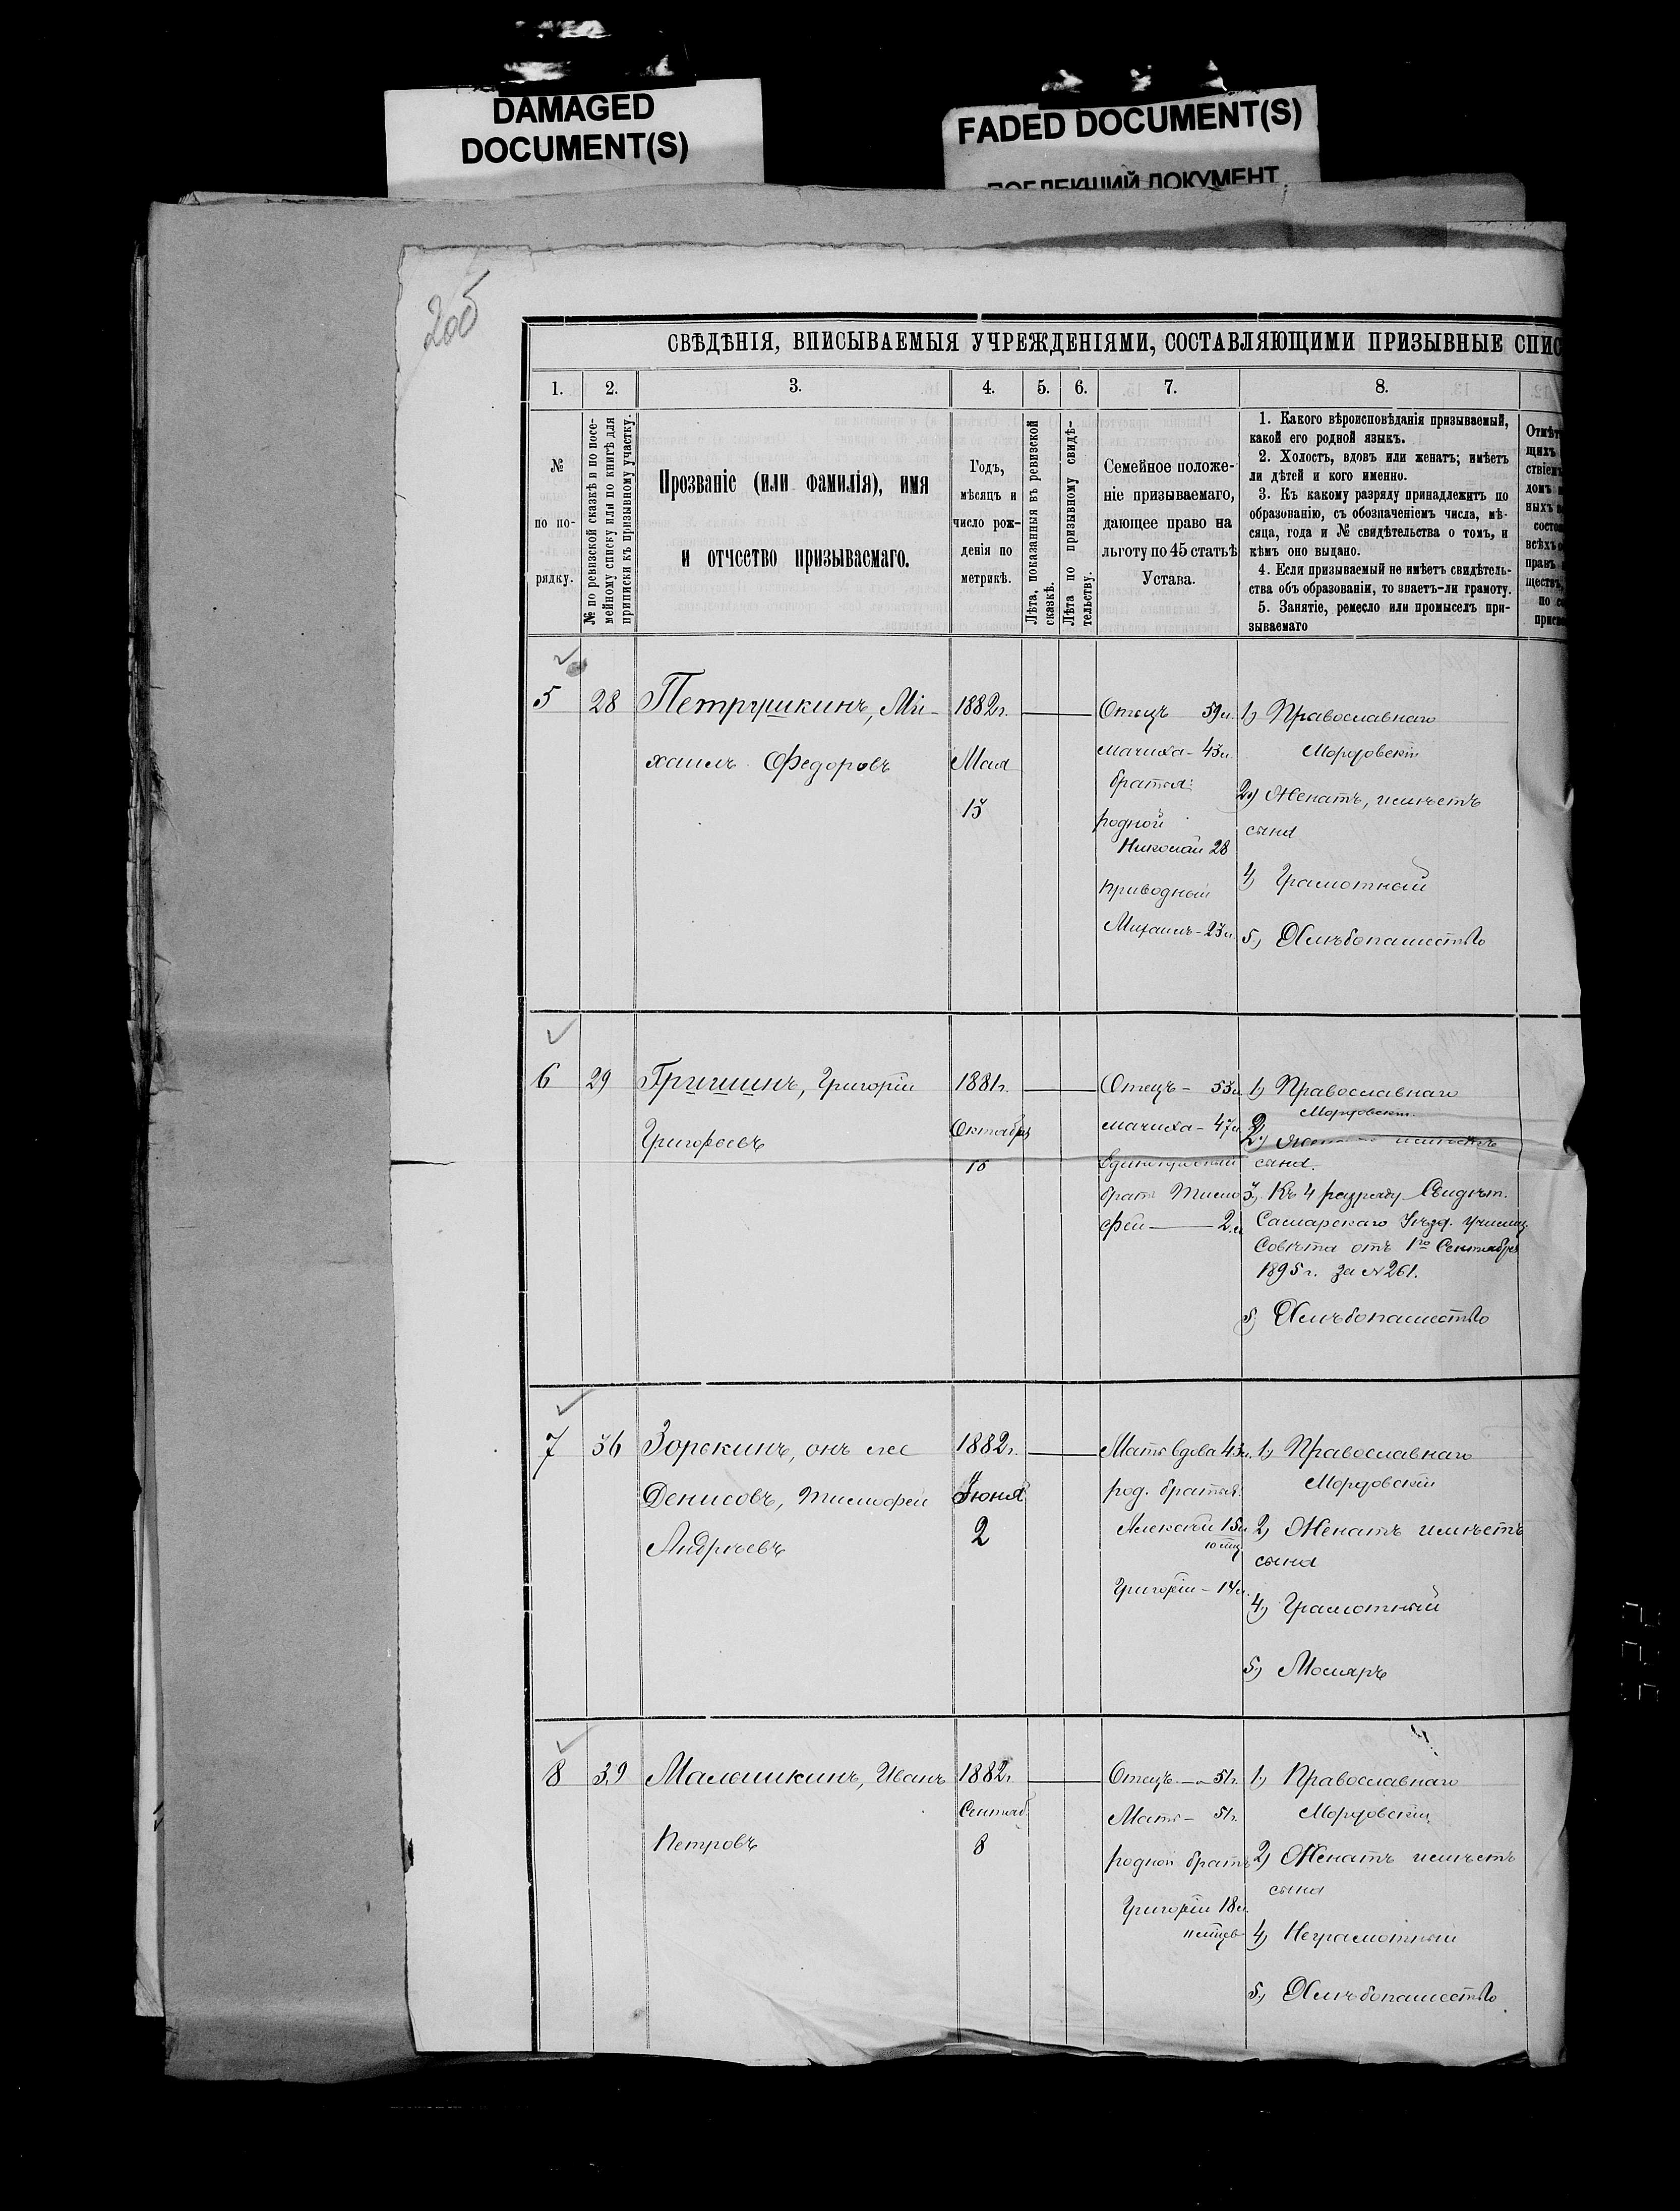 DAMAGED
DOCUMENT(S)
FADED DOCUMENT(S)
ПОБЛЕКШИЙ ДОКУМЕНТ
205
СВѢДѢНІЯ, ВПИСЫВАЕМЫЯ УЧРЕЖДЕНІЯМИ, СОСТАВЛЯЮЩИМИ ПРИЗЫВНЫЕ СПИС
1. 2. 3. 4. 5. 6. 7. 8.
№
по по-
рядку.
№ по ревизской сказкѣ и по посе-
мейному списку или по книгѣ для
приписки къ призывному участку.
Прозваніе (или фамилія), имя
и отчество призываемаго.
Годъ,
мѣсяцъ и
число рож-
денія по
метрикѣ.
Лѣта, показанныя въ ревизской
сказкѣ.
Лѣта по призывному свидѣ-
тельству.
Семейное положе-
ніе призываемаго,
дающее право на
льготу по 45 статьѣ
Устава.
1. Какого вѣроисповѣданія призываемый,
какой его родной языкъ.
2. Холостъ, вдовъ или женатъ; имѣетъ
ли дѣтей и кого именно.
3. Къ какому разряду принадлежитъ по
образованію, съ обозначеніемъ числа, мѣ-
сяца, года и № свидѣтельства о томъ, и
кѣмъ оно выдано.
4. Если призываемый не имѣетъ свидѣтель-
ства объ образованіи, то знаетъ-ли грамоту.
5. Занятіе, ремесло или промыселъ при-
зываемаго
Отмѣт
щихъ
ствіем
домъ
ныхъ
состо
всѣхъ
правъ
ществ
по
5 28 Петрушкинъ, Ми-
хаилъ Федоровъ
1882г.
Мая
15
Отецъ 59л.
мачиха - 43л.
братья:
родной
Николай 28
приводный
Михаилъ - 23л.
1) Православнаго
Мордовскій
2) Женатъ, имѣетъ
сына
4) Грамотный
5) Хлѣбопашество
6 29 Гришинъ, Григорій
Григорьевъ
1881г.
Октября
10
Отецъ - 53л.
мачиха - 47л.
Единокровный
братъ Тимо
фей — 2л.
1) Православнаго
Мордовскій.
2) Женатъ имѣетъ
сына.
3) Къ 4 разряду Свидѣт.
Самарскаго Уѣзд. Училищ.
Совѣта отъ 1го Сентября
1895г. за №261.
5) Хлѣбопашество
7 36 Зорькинъ, онъ же
Денисовъ, Тимофей
Андрѣевъ
1882г.
Іюня
2
Мать вдова 43л.
род. братья.
Алексѣй 15л
10 мц
Григорій - 14л.
1) Православнаго
Мордовскій
2) Женатъ имѣетъ
сына
4) Грамотный
5) Моляръ
8 39 Малышкинъ, Иванъ
Петровъ
1882г.
Сентяб.
8
Отецъ — 51г.
Мать - 51г.
родной братъ
Григорій 18л.
11 мцев
1) Православнаго
Мордовскій
2) Женатъ имѣетъ
сына
4) Неграмотный
5) Хлѣбопашество